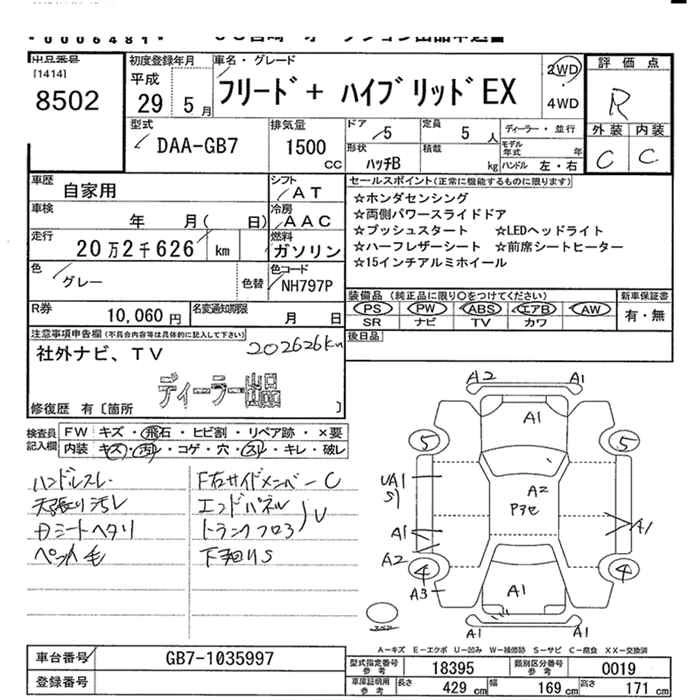 *0006481*
出品番号
[1414]
8502
初度登録年月
平成
29 5月
車名・グレード
フリード+ ハイブリッドEX
2WD
4WD
評価点
R
外装 内装
C C
型式
DAA-GB7
排気量
1500
CC
ドア
5
定員
5人
ディーラー・並行
形状
ハッチB
積載
kg
モデル年式
年
ハンドル 左・右
車歴
自家用
シフト
AT
車検
年 月( 日)
冷房
AAC
走行
20万2千626 km
燃料
ガソリン
色
グレー
色替
色コード
NH797P
R券
10,060円
名変通知期限
月 日
セールスポイント(正常に機能するものに限ります)
☆ホンダセンシング
☆両側パワースライドドア
☆プッシュスタート ☆LEDヘッドライト
☆ハーフレザーシート ☆前席シートヒーター
☆15インチアルミホイール
装備品(純正品に限り○をつけてください)
新車保証書
PS PW ABS エアB AW
SR ナビ TV カワ
有・無
後日品
注意事項申告欄(不具合内容等は具体的に記入して下さい)
社外ナビ、TV
202626km
ディーラー出品
修復歴 有〔箇所 〕
検査員記入欄
FW キズ・飛石・ヒビ割・リペア跡・×要
内装 キズ・汚レ・コゲ・穴・スレ・キレ・破レ
ハンドルスレ
天張り汚レ
Dシートヘタリ
ペット毛
F右サイドメンバーC
エンドパネル
トランクフロア
U
下回りS
A2 A1
A1
5 5
UA1
S1
A2
Pヌセ
A1
A1
A2
4 4
A3
A1
A1 A1
スペア
A-キズ E-エクボ U-凹み W-補修跡 S-サビ C-腐食 XX-交換済
車台番号
GB7-1035997
登録番号
型式指定番号
参考
18395
類別区分番号
参考
0019
車庫証明用
参考
長さ
429 cm
幅
169 cm
高さ
171 cm